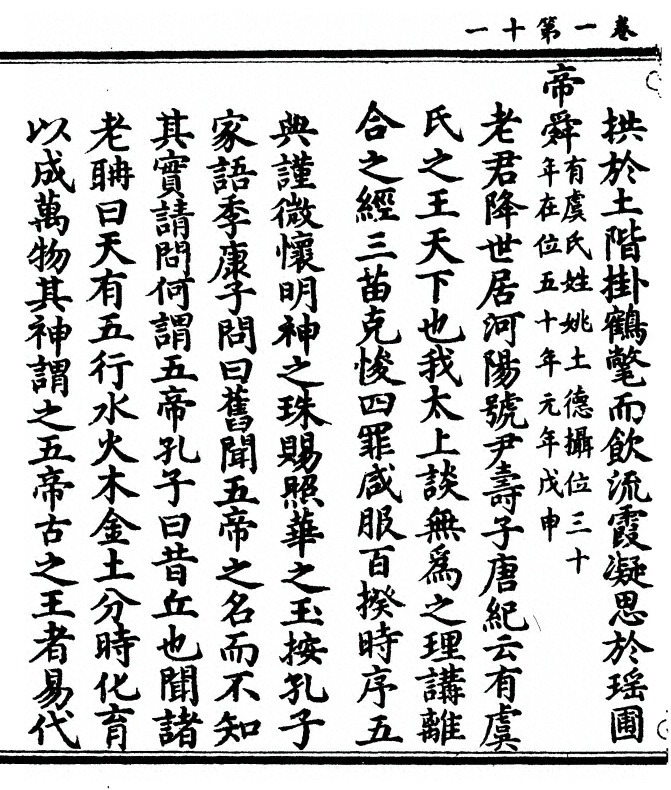 卷一第十一
拱於土階掛鶴氅而飲流霞凝思於瑶圃
帝舜有虞氏姓姚土德攝位三十
年在位五十年元年戊申
老君降世居河陽號尹壽子唐紀云有虞
氏之王天下也我太上談無爲之理講離
合之經三苗克悛四罪咸服百揆時序五
典謹微懷明神之珠賜照華之玉按孔子
家語季康子問曰舊聞五帝之名而不知
其實請問何謂五帝孔子曰昔丘也聞諸
老聃曰天有五行水火木金土分時化育
以成萬物其神謂之五帝古之王者易代